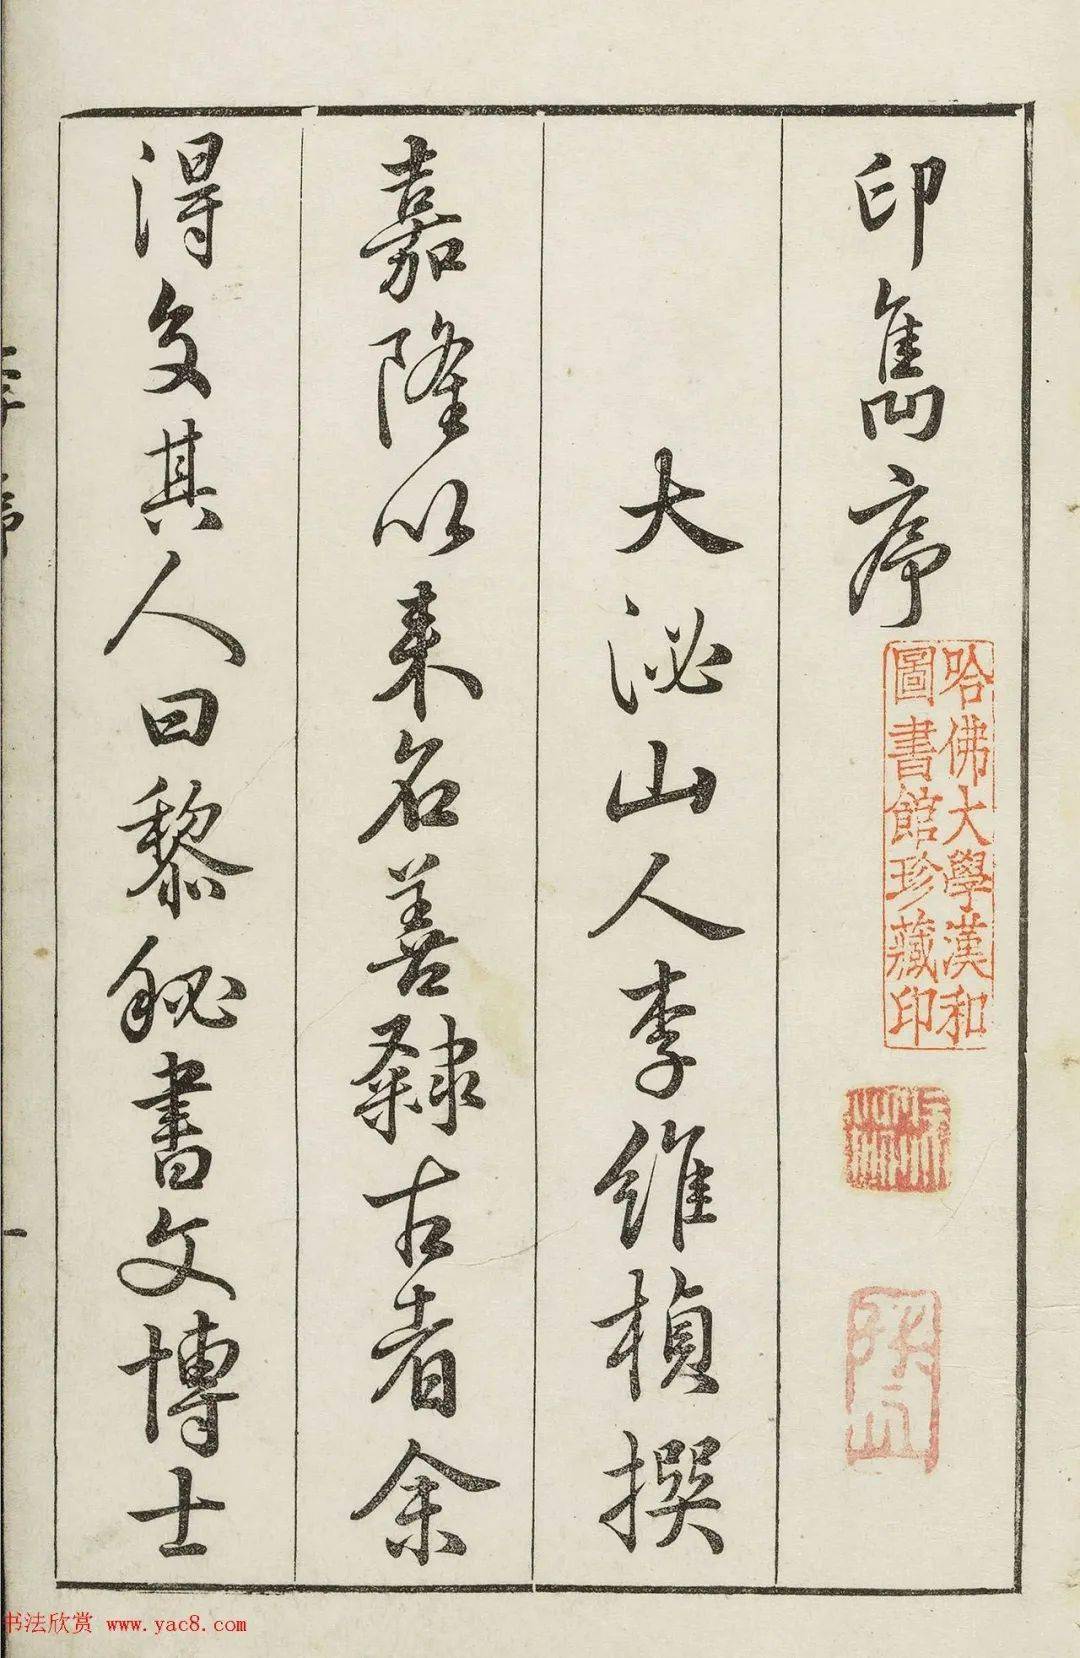 印雋序
哈佛大學漢和
圖書館珍藏印
大泌山人李維楨撰
嘉隆以来名善隸古者余
得交其人曰黎秘書文博士
李序
一
书法欣赏 www.yac8.com